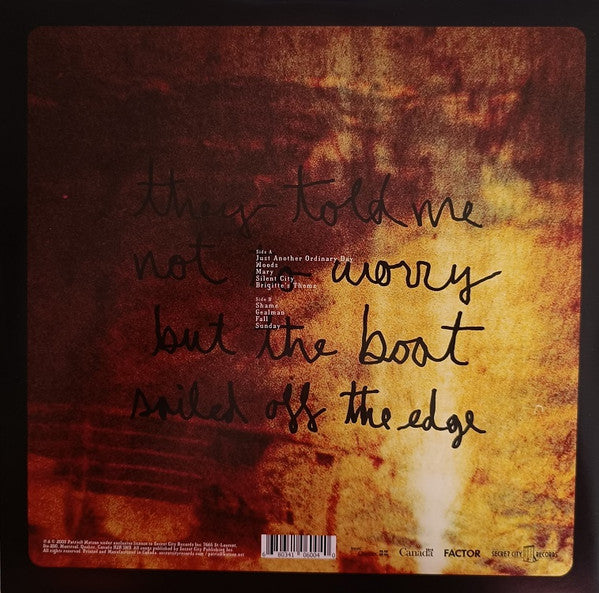 they told me
not to worry
but the boat
sailed off the edge
Side A
Just Another Ordinary Day
Woods
Mary
Silent City
Brigitte's Theme
Side B
Shame
Gealman
Fall
Sunday
℗ & © 2003 Patrick Watson under exclusive license to Secret City Records Inc. 7666 St-Laurent,
Montreal, Quebec, Canada H2R 1W9. All songs published by Secret City Publishing Inc.
All rights reserved. Printed and Manufactured in Canada. secretcityrecords.com / patrickwatson.net
6 80341 06004 0
Canada
FACTOR
SECRET CITY RECORDS